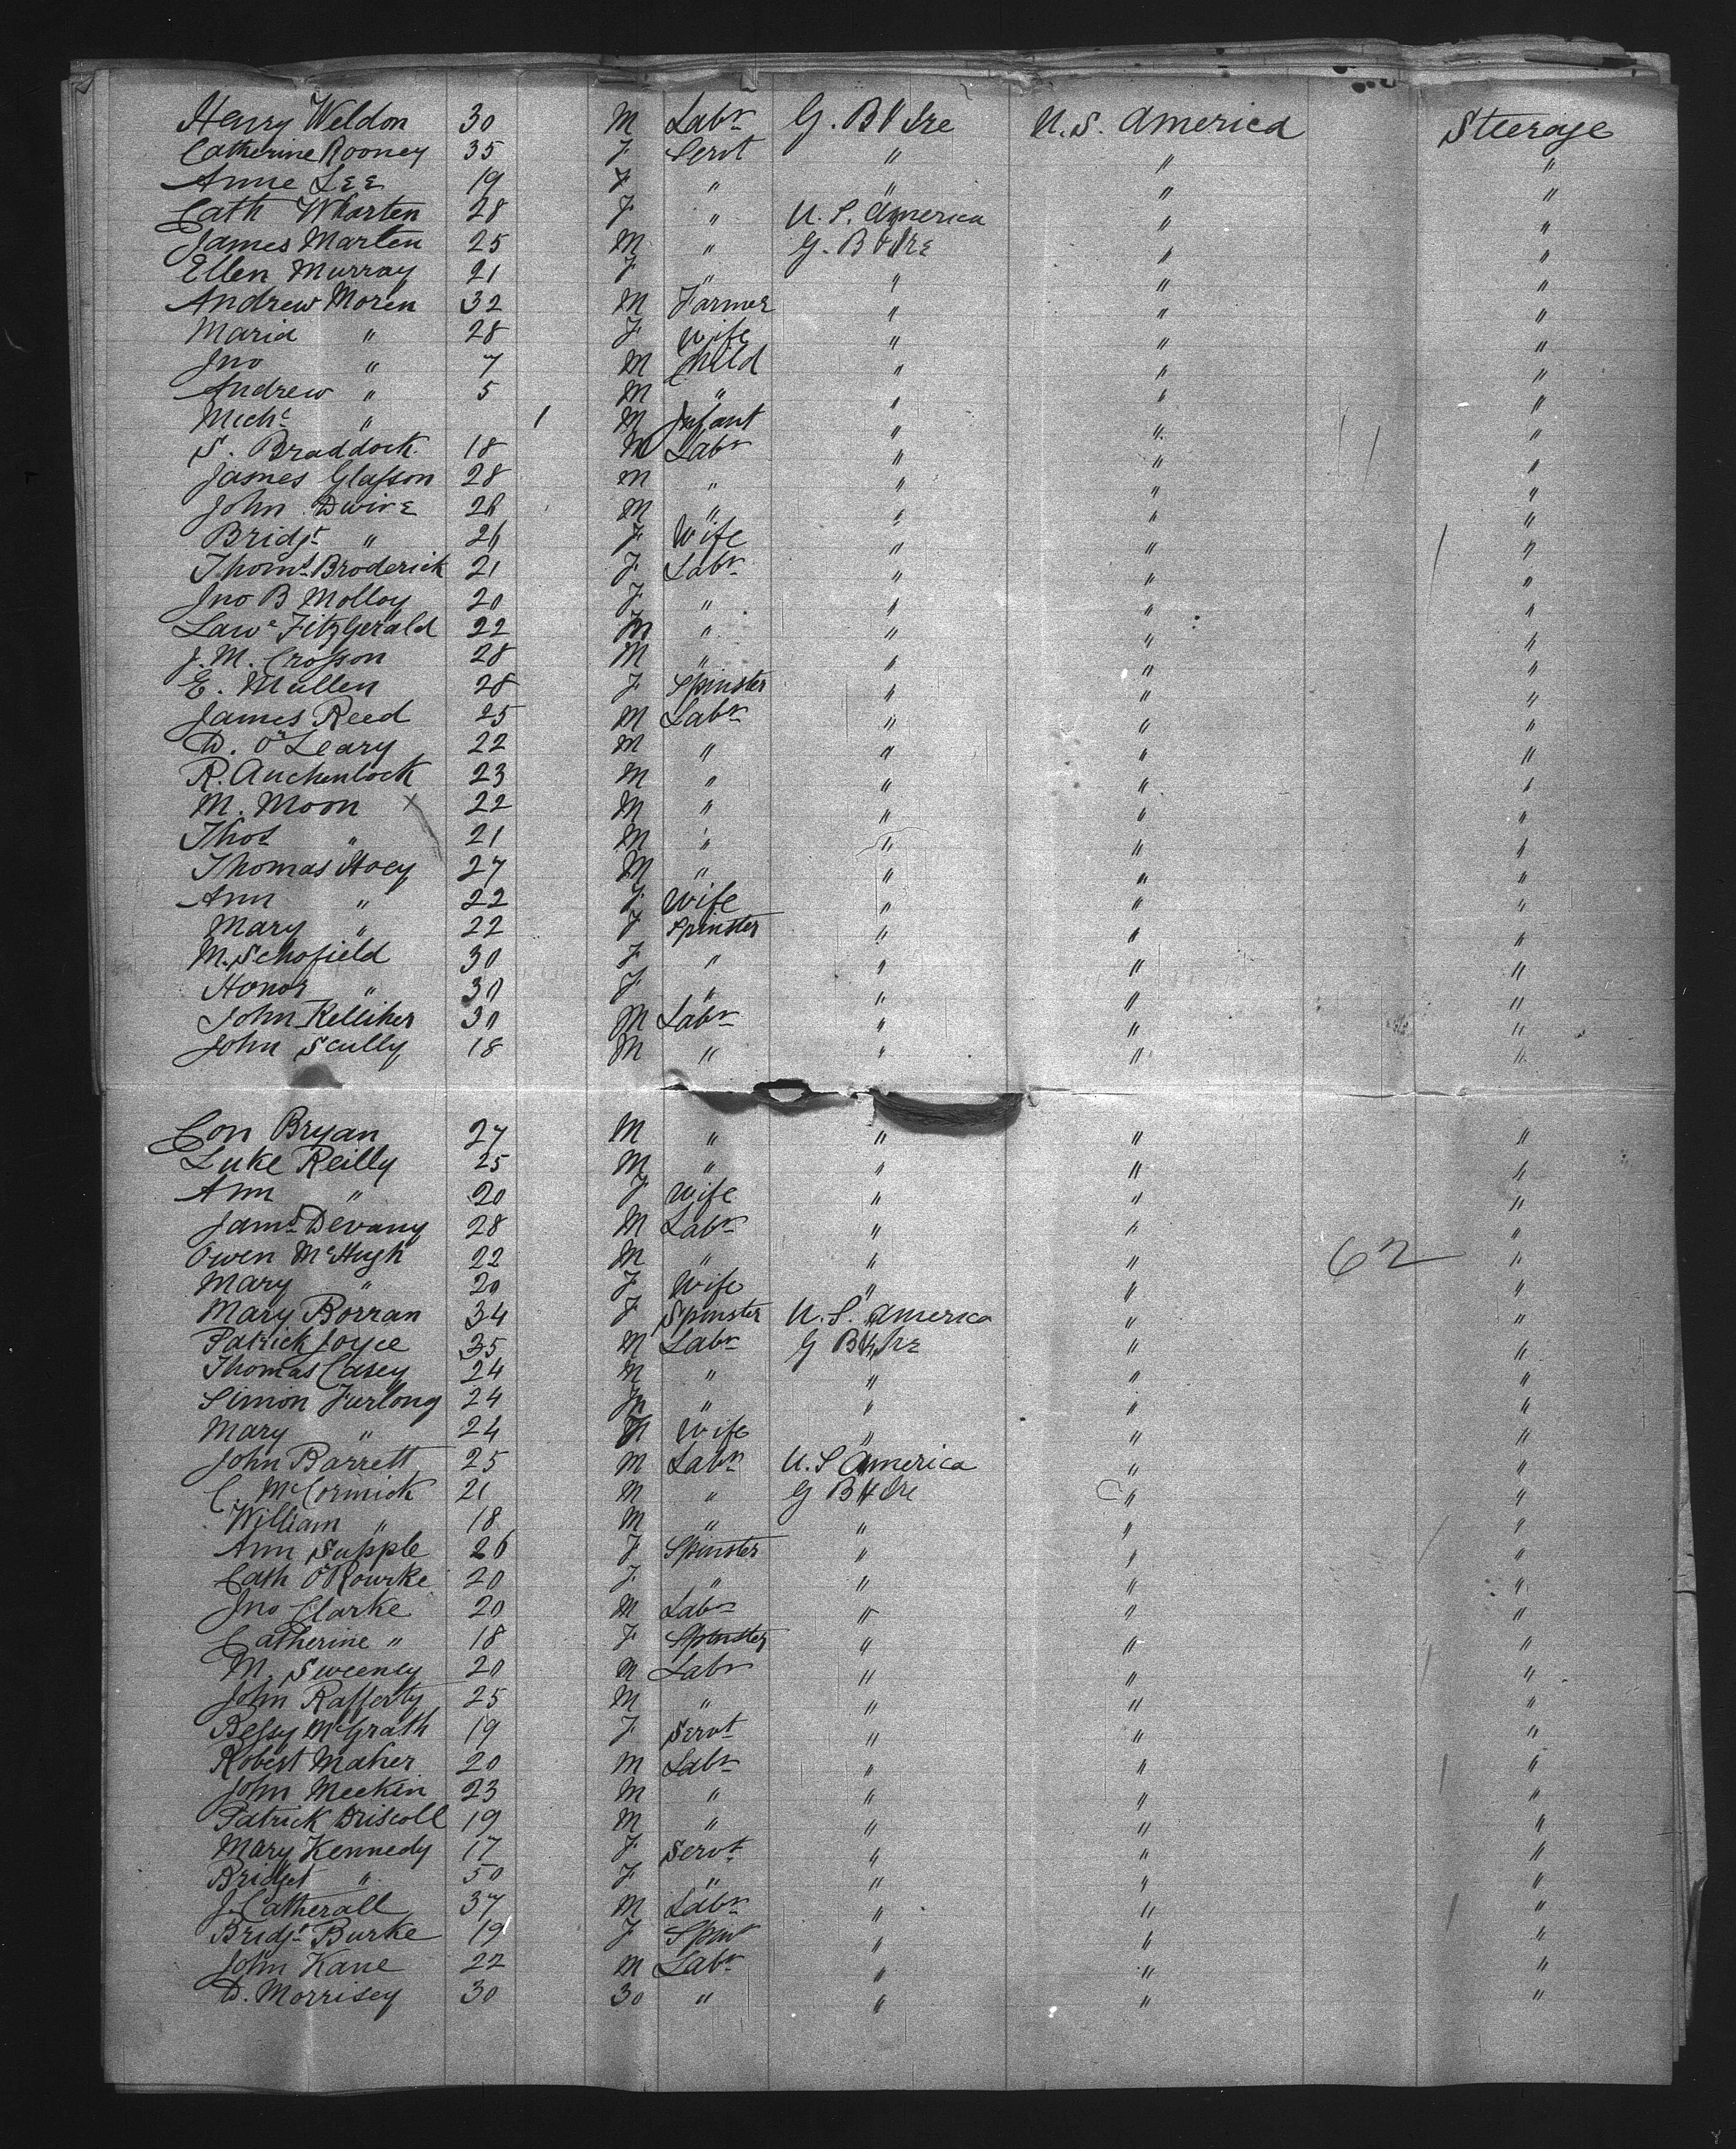 Henry Weldon 30 M Labr G. B & Ire U.S. America Steerage
Catherine Rooney 35 F Servt " " "
Anne Lee 19 F " " " "
Cath Wharten 28 F " U.S. America " "
James Marten 25 M " G. B & Ire " "
Ellen Murray 21 F " " " "
Andrew Moren 32 M Farmer " " "
Maria " 28 F Wife " " "
Jno " 7 M Child " " "
Andrew " 5 M " " " "
Michl " 1 M Infant " " "
S. Braddock 18 M Labr " " "
James Glasson 28 M " " " "
John Dwire 28 M " " " "
Bridgt " 26 F Wife " " "
Thoms Broderick 21 F Labr " " "
Jno B Molloy 20 F " " " "
Lawe FitzGerald 22 M " " " "
J. M. Crosson 28 M " " " "
E. Mullen 28 F Spinster " " "
James Reed 25 M Labr " " "
D. O'Leary 22 M " " " "
R. Auchenlock 23 M " " " "
M. Moon x 22 M " " " "
Thos " 21 M " " " "
Thomas Hoey 27 M " " " "
Ann " 22 F Wife " " "
Mary " 22 F Spinster " " "
M. Schofield 30 F " " " "
Honor " 30 F " " " "
John Kelliher 30 M Labr " " "
John Scully 18 M " " " "
Con Bryan 27 M " " " "
Luke Reilly 25 M " " " "
Ann " 20 F Wife " " "
Jams Devany 28 M Labr " " "
Owen McHugh 22 M " " " 62 "
Mary " 20 F Wife " " "
Mary Borran 34 F Spinster U.S. America " "
Patrick Joyce 35 M Labr G B & Ire " "
Thomas Casey 24 M " " " "
Simon Furlong 24 M " " " "
Mary " 24 F Wife " " "
John Barrett 25 M Labr U.S America " "
C. McCormick 21 M " G B & Ire " "
William " 18 M " " " "
Ann Supple 26 F Spinster " " "
Cath O'Rourke 20 F " " " "
Jno Clarke 20 M Labr " " "
Catherine " 18 F Spinster " " "
M. Sweeney 20 M Labr " " "
John Rafferty 25 M " " " "
Bessy McGrath 19 F Servt " " "
Robert Maher 20 M Labr " " "
John Meekin 23 M " " " "
Patrick Driscoll 19 M " " " "
Mary Kennedy 17 F Servt " " "
Bridget " 50 F " " " "
J. Catherall 37 M Labr " " "
Bridgt Burke 19 F Spin " " "
John Kane 22 M Labr " " "
D. Morrisey 30 30 " " " "